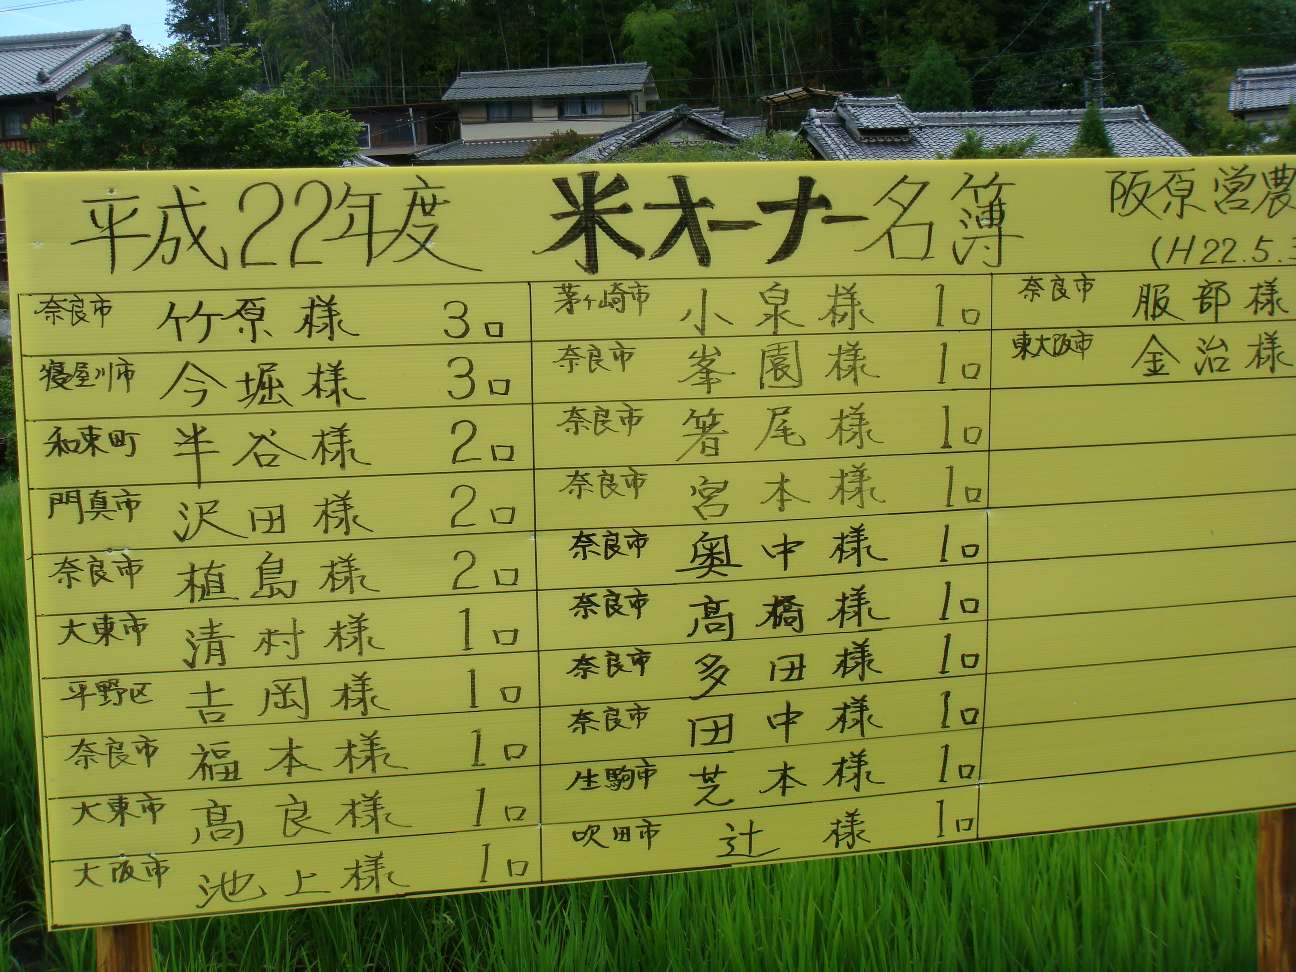 平成22年度 米オーナー名簿 阪原営農
(H22.5.3
奈良市 竹原様 3口
寝屋川市 今堀様 3口
和束町 半谷様 2口
門真市 沢田様 2口
奈良市 植島様 2口
大東市 清村様 1口
平野区 吉岡様 1口
奈良市 福本様 1口
大東市 髙良様 1口
大阪市 池上様 1口
茅ヶ崎市 小泉様 1口
奈良市 峯園様 1口
奈良市 箸尾様 1口
奈良市 宮本様 1口
奈良市 奥中様 1口
奈良市 髙橋様 1口
奈良市 多田様 1口
奈良市 田中様 1口
生駒市 芝本様 1口
吹田市 辻様 1口
奈良市 服部様
東大阪市 金治様